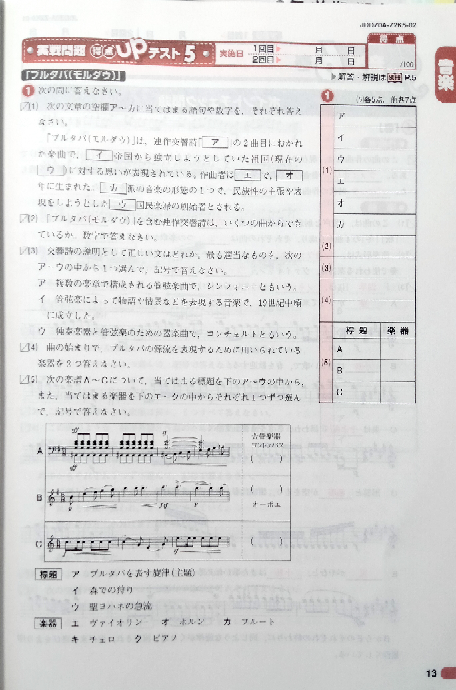 実戦問題 得点UPテスト5
実施日 1回目 月 日
2回目 月 日
得点
/100
▶解答・解説は P.5
音楽
「ブルタバ(モルダウ)」
1 次の問に答えなさい。
(1) 次の文章の空欄ア~カに当てはまる語句や数字を、それぞれ答え
なさい。
「ブルタバ(モルダウ)」は、連作交響詩「ア」の2曲目におかれ
た楽曲で、イ帝国から独立しようとしていた祖国(現在の
ウ)に対する思いが表現されている。作曲者はエで、オ
年に生まれた。カ派の音楽の形態の1つで、民族性の主張や表
現をしようとしたウ国民楽派の創始者とされる。
(2) 「ブルタバ(モルダウ)」を含む連作交響詩は、いくつの曲からでき
ているか、数字で答えなさい。
(3) 交響詩の説明として正しい文はどれか。最も適当なものを、次の
ア~ウの中から1つ選んで、記号で答えなさい。
ア 複数の楽章で構成される管弦楽曲で、シンフォニーともいう。
イ 管弦楽によって物語や情景などを表現する音楽で、19世紀中頃
に成立した。
ウ 独奏楽器と管弦楽のための器楽曲で、コンチェルトともいう。
(4) 曲の始まりで、ブルタバの源流を表現するために用いられている
楽器を2つ答えなさい。
(5) 次の楽譜A~Cについて、当てはまる標題を下のア~ウの中から、
また、当てはまる楽器を下のエ~クの中からそれぞれ1つずつ選ん
で、記号で答えなさい。
A
( )
B
オーボエ
C
( )
標題 ア ブルタバを表す旋律(主題)
イ 森での狩り
ウ 聖ヨハネの急流
楽器 エ ヴァイオリン オ ホルン カ フルート
キ チェロ ク ピアノ
1
ア
イ
ウ
(1)
エ
オ
カ
(2)
(3)
(4)
標題 楽器
A
(5)
B
C
13